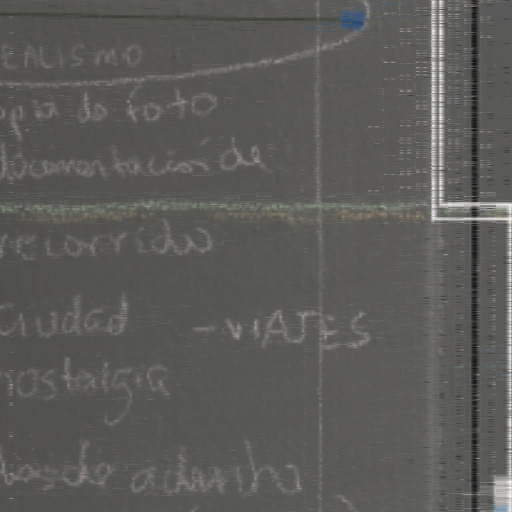 EALISMO
opia de foto
documentación de
recorrido
ciudad - VIAJES
nostalgia